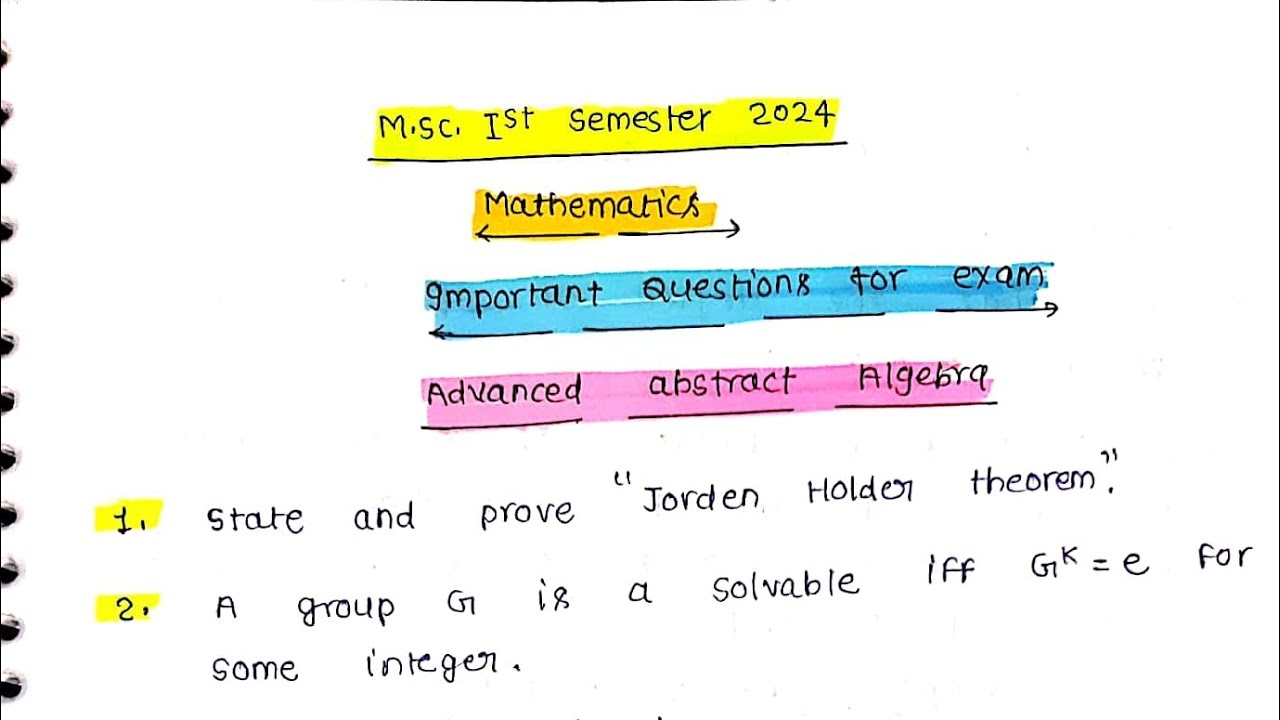 M.sc. Ist semester 2024
Mathematics
Important Questions for exam
Advanced abstract Algebra
1. State and prove "Jorden Holder theorem".
2. A group G is a solvable iff G^K = e for
some integer.